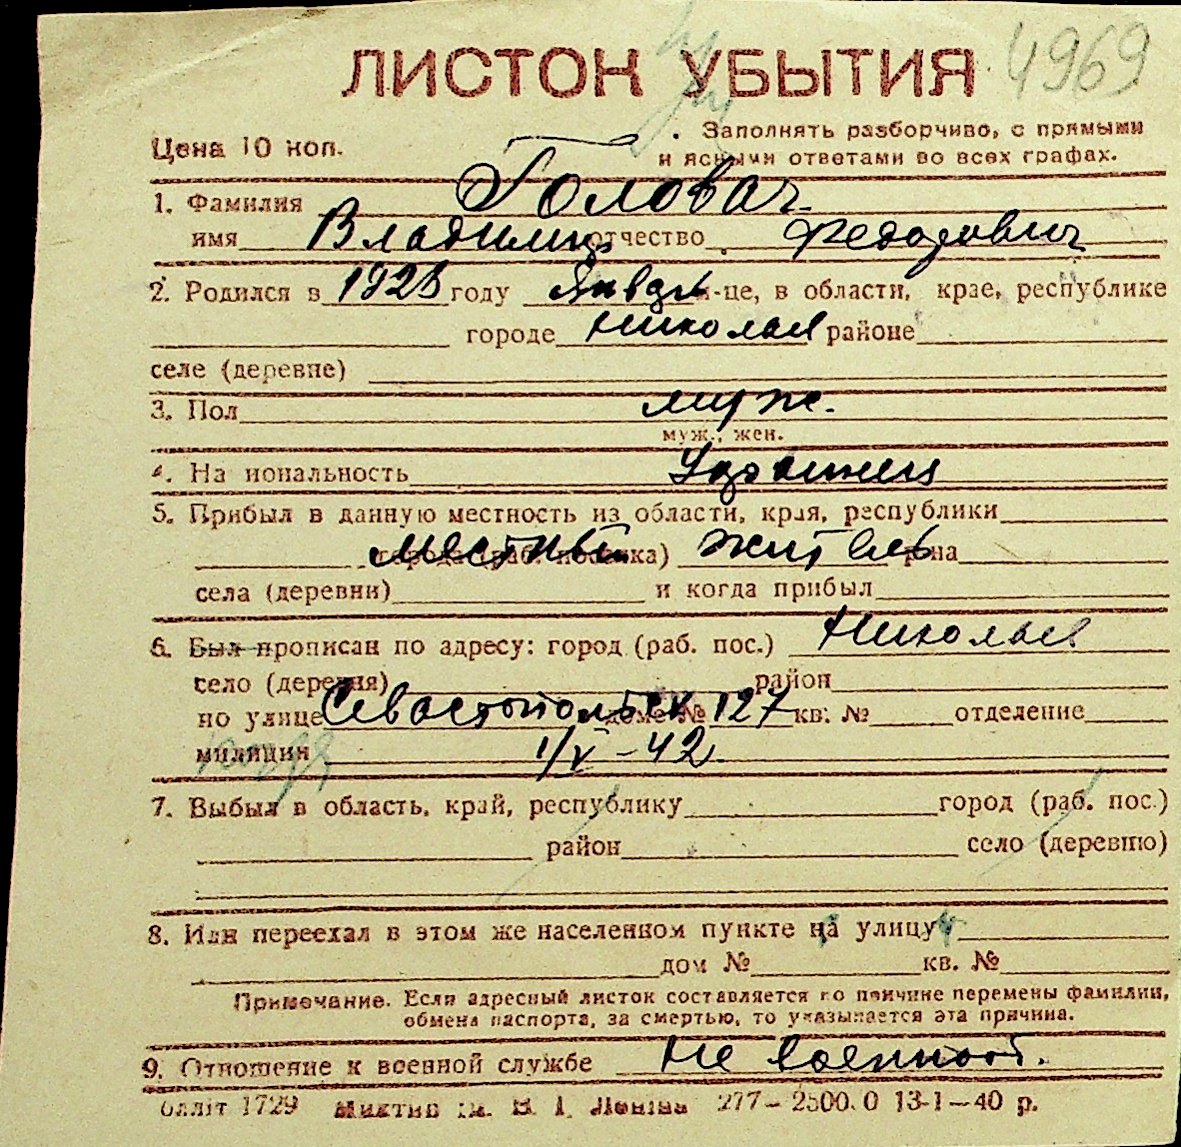 ЛИСТОК УБЫТИЯ 4969
Цена 10 коп.
Заполнять разборчиво, с прямыми
и ясными ответами во всех графах.
1. Фамилия Головач
имя Владимир отчество Федорович
2. Родился в году м-це, в области, крае, республике
городе Николаев районе
селе (деревне)
3. Пол муж.
муж., жен.
4. Национальность Украинец
5. Прибыл в данную местность из области, края, республики
города (раб. поселка) местный житель р-на
села (деревни) и когда прибыл
6. Был прописан по адресу: город (раб. пос.) Николаев
село (деревня) район
по улице Севастопольск доме № 127 кв. № отделение
милиции 1/V-42
7. Выбыл в область, край, республику город (раб. пос.)
район село (деревню)
8. Или переехал в этом же населенном пункте на улицу
дом № кв. №
Примечание. Если адресный листок составляется по причине перемены фамилии,
обмена паспорта, за смертью, то указывается эта причина.
9. Отношение к военной службе Не военнооб.
1729 277—2500.0 13-1—40 р.